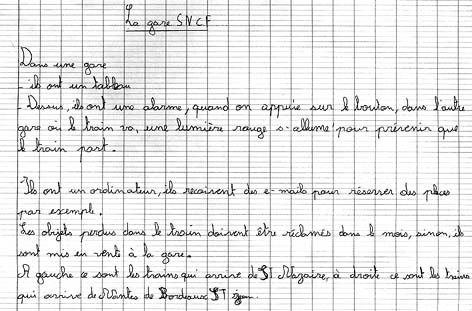 La gare SNCF
Dans une gare
- ils ont un tableau
- Dessus, ils ont une alarme, quand on appuie sur le bouton, dans l'autre
gare où le train va, une lumière rouge s'allume pour prévenir que
le train part.
Ils ont un ordinateur, ils recoivent des e-mails pour réserver des places
par exemple.
Les objets perdus dans le train doivent être réclamés dans le mois, sinon, ils
sont mis en vente à la gare.
A gauche ce sont les trains qui arrive de ST Nazaire, à droite ce sont les trains
qui arrive de Nantes de Bordeaux ST